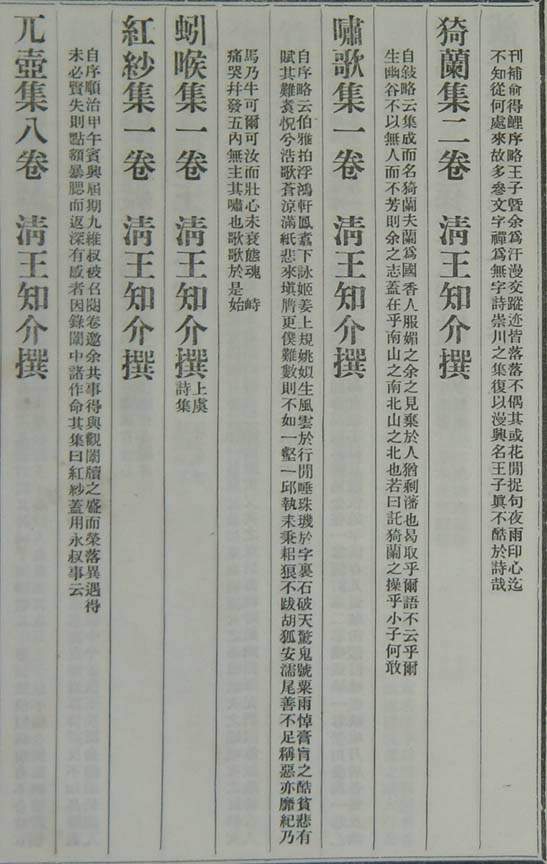 刊補俞得鯉序略王子暨余爲汗漫交蹤迹皆落落不偶其或花間捉句夜雨印心迄
不知從何處來故多參文字禪爲無字詩崇川之集復以漫興名王子眞不酷於詩哉
猗蘭集二卷　淸王知介撰
自敍略云集成而名猗蘭夫蘭爲國香人服媚之余之見棄於人猶剩藩也曷取乎爾語不云乎爾
生幽谷不以無人而不芳則余之志蓋在乎南山之南北山之北也若曰託猗蘭之操乎小子何敢
嘯歌集一卷　淸王知介撰
自序略云伯雅拍浮鴻軒鳳翥下詠姬姜上規姚姒生風雲於行間唾珠璣於字裏石破天驚鬼號粟雨悼膏肓之酷貧悲有
賦其難袁怳兮浩歌蒼涼滿紙悲來塡膺更僕難數則不如一壑一邱執耒秉耜狼不跋胡狐安濡尾善不足稱惡亦靡紀乃
馬乃牛可爾可汝而壯心未衰態魂　峙
痛哭幷發五內無主其嘯也歌歌於是始
蚓喉集一卷　淸王知介撰　上虞
詩集
紅紗集一卷　淸王知介撰
自序順治甲午賓興屆期九維叔被召閱卷邀余共事得與觀闈牘之盛而榮落異遇得
未必賢失則點額暴腮而返深有感者因錄闈中諸作命其集曰紅紗蓋用永叔事云
兀壺集八卷　淸王知介撰